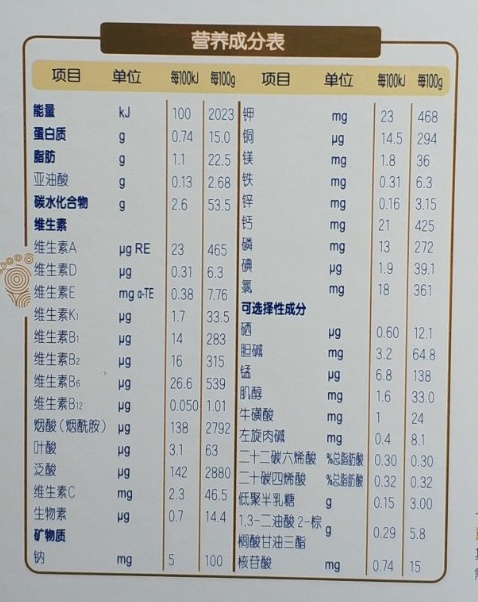 营养成分表
项目 单位 每100kJ 每100g
能量 kJ 100 2023
蛋白质 g 0.74 15.0
脂肪 g 1.1 22.5
亚油酸 g 0.13 2.68
碳水化合物 g 2.6 53.5
维生素
维生素A μg RE 23 465
维生素D μg 0.31 6.3
维生素E mg α-TE 0.38 7.76
维生素K₁ μg 1.7 33.5
维生素B₁ μg 14 283
维生素B₂ μg 16 315
维生素B₆ μg 26.6 539
维生素B₁₂ μg 0.050 1.01
烟酸（烟酰胺） μg 138 2792
叶酸 μg 3.1 63
泛酸 μg 142 2880
维生素C mg 2.3 46.5
生物素 μg 0.7 14.4
矿物质
钠 mg 5 100
项目 单位 每100kJ 每100g
钾 mg 23 468
铜 μg 14.5 294
镁 mg 1.8 36
铁 mg 0.31 6.3
锌 mg 0.16 3.15
钙 mg 21 425
磷 mg 13 272
碘 μg 1.9 39.1
氯 mg 18 361
可选择性成分
硒 μg 0.60 12.1
胆碱 mg 3.2 64.8
锰 μg 6.8 138
肌醇 mg 1.6 33.0
牛磺酸 mg 1 24
左旋肉碱 mg 0.4 8.1
二十二碳六烯酸 %总脂肪酸 0.30 0.30
二十碳四烯酸 %总脂肪酸 0.32 0.32
低聚半乳糖 g 0.15 3.00
1,3-二油酸 2-棕
榈酸甘油三酯 g 0.29 5.8
核苷酸 mg 0.74 15